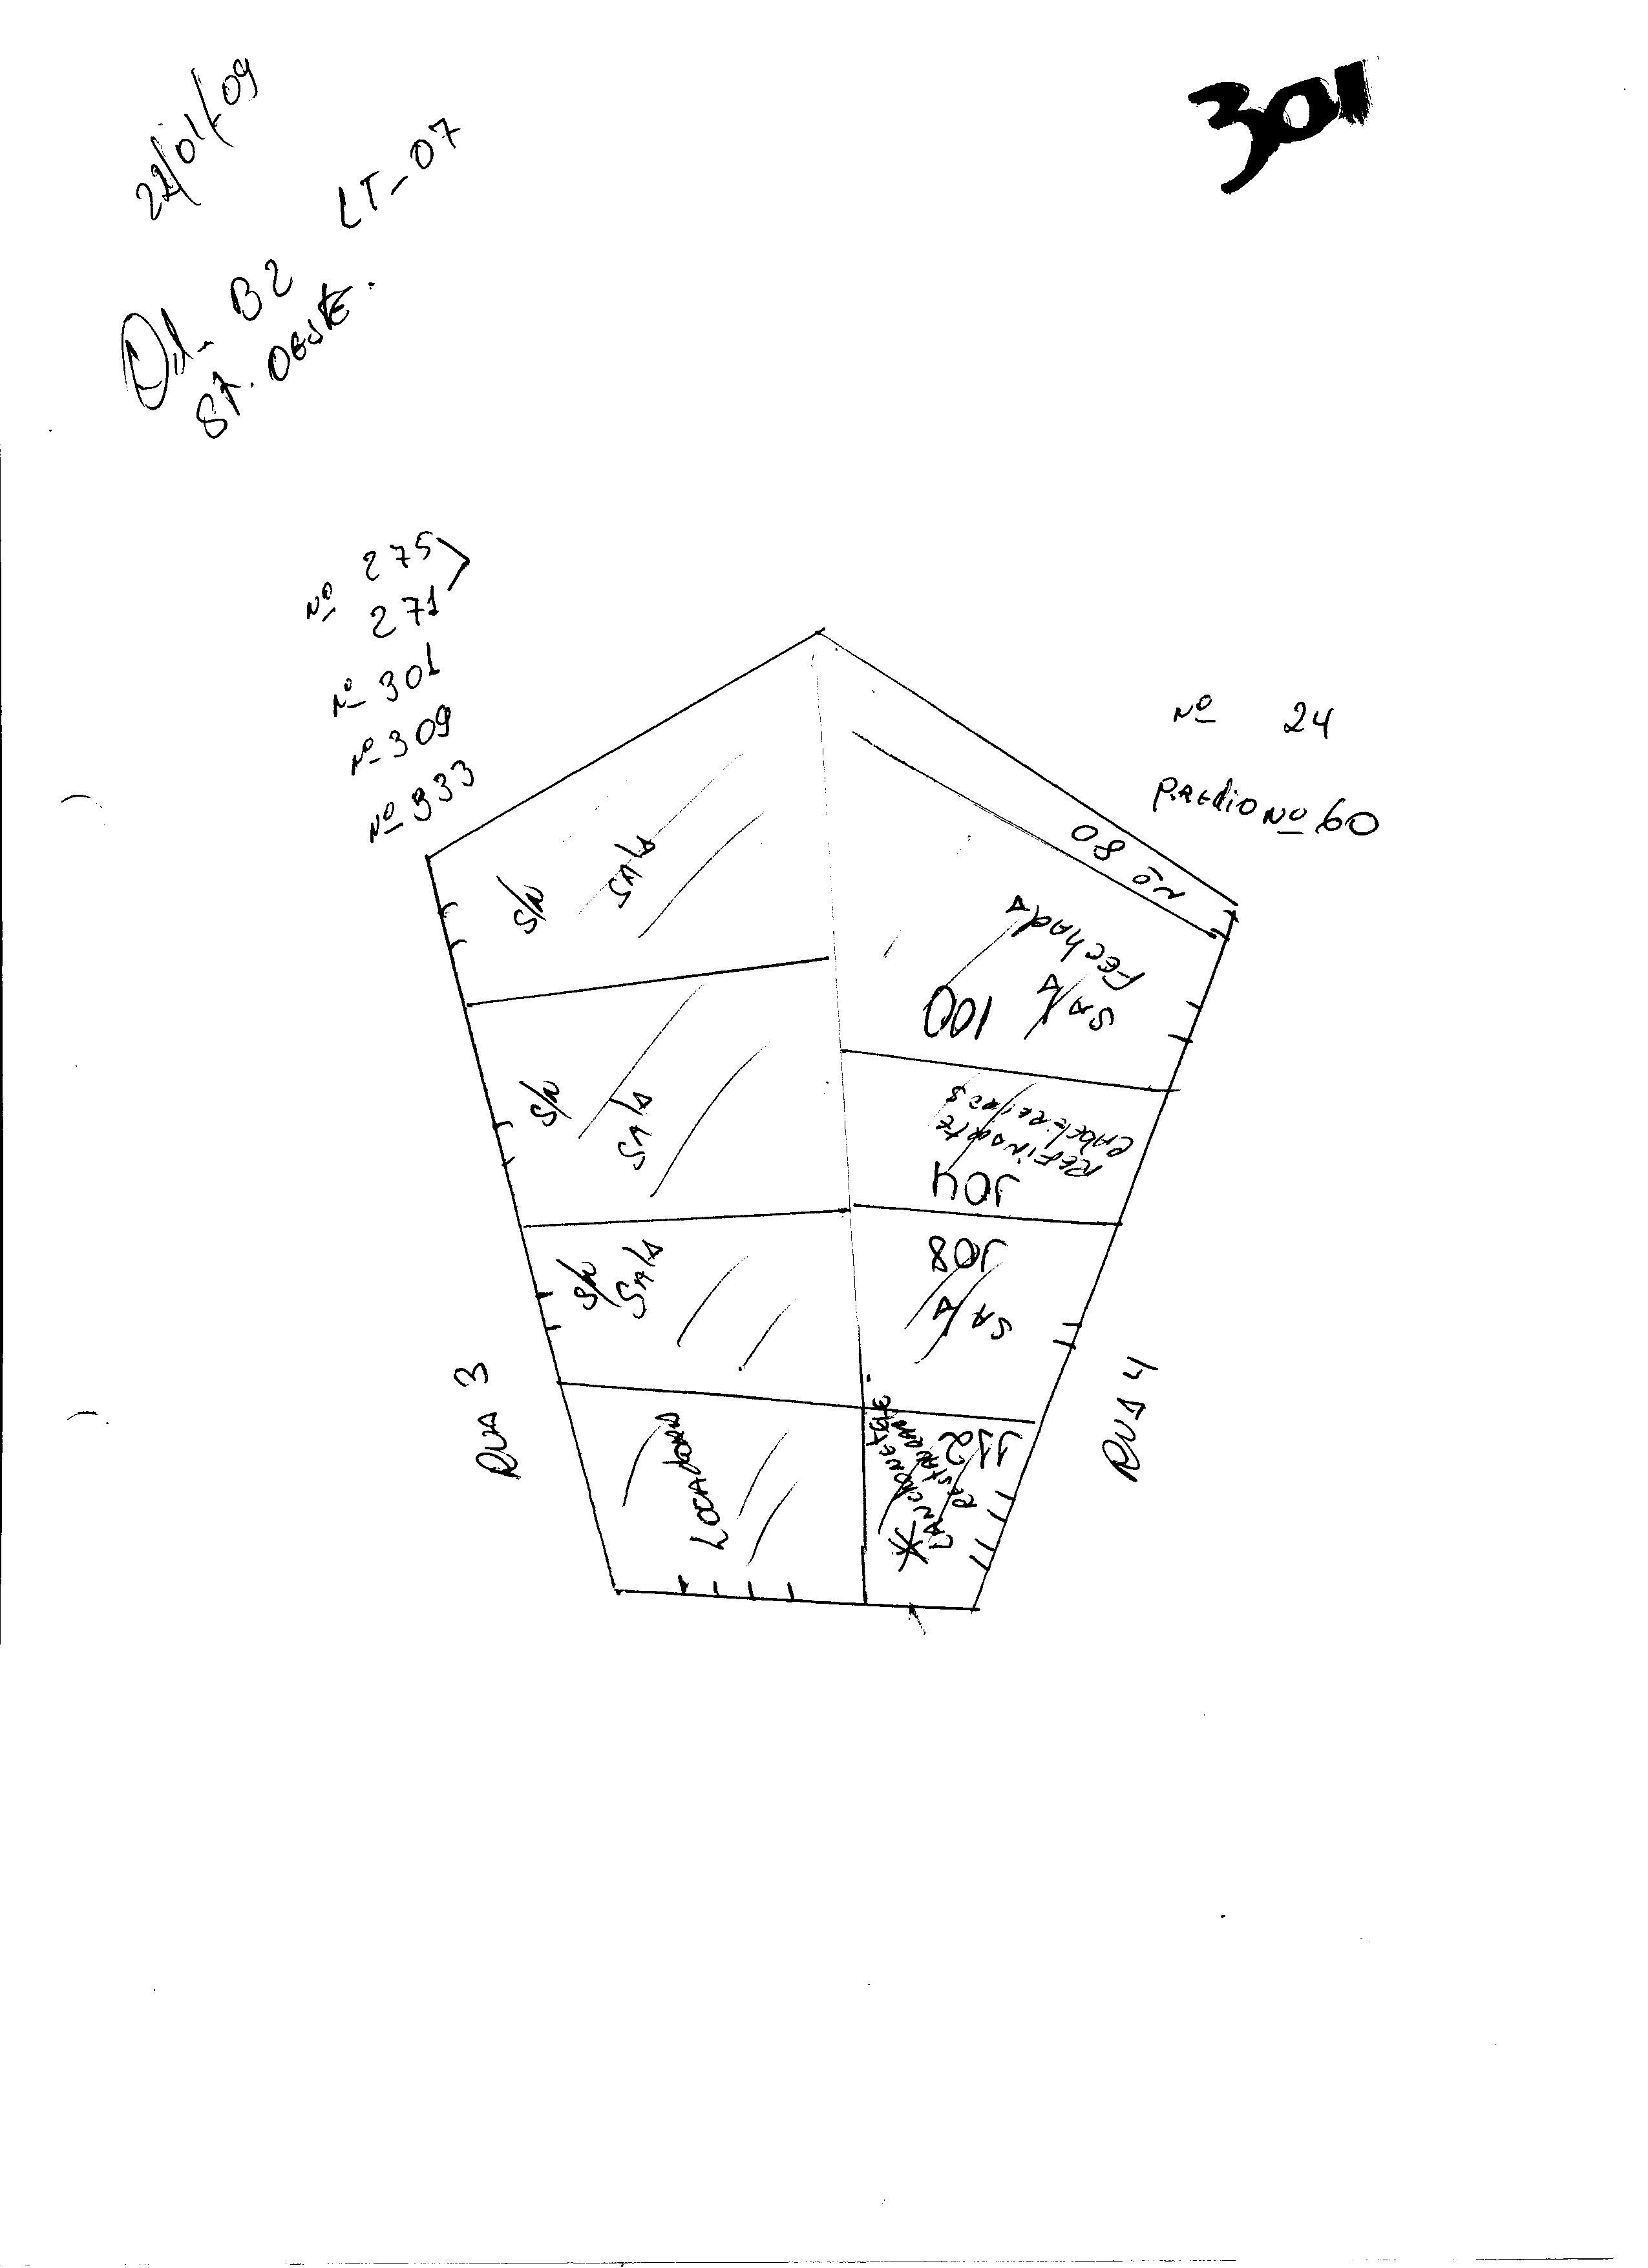 301
22/01/09
Qd- B2 LT-07
ST. OESTE.
Nº 275
271
Nº 301
Nº 309
Nº 333
Nº 24
PREdIO Nº 60
Nº 80
S/N SAlA
SAlA FEchadA
100
S/N SAlA
REFINOARTE
CABELEREIROS
104
S/N SAlA
108
SAlA
RUA 3
RUA 4
LOCADORA
112
* LANCHONETE